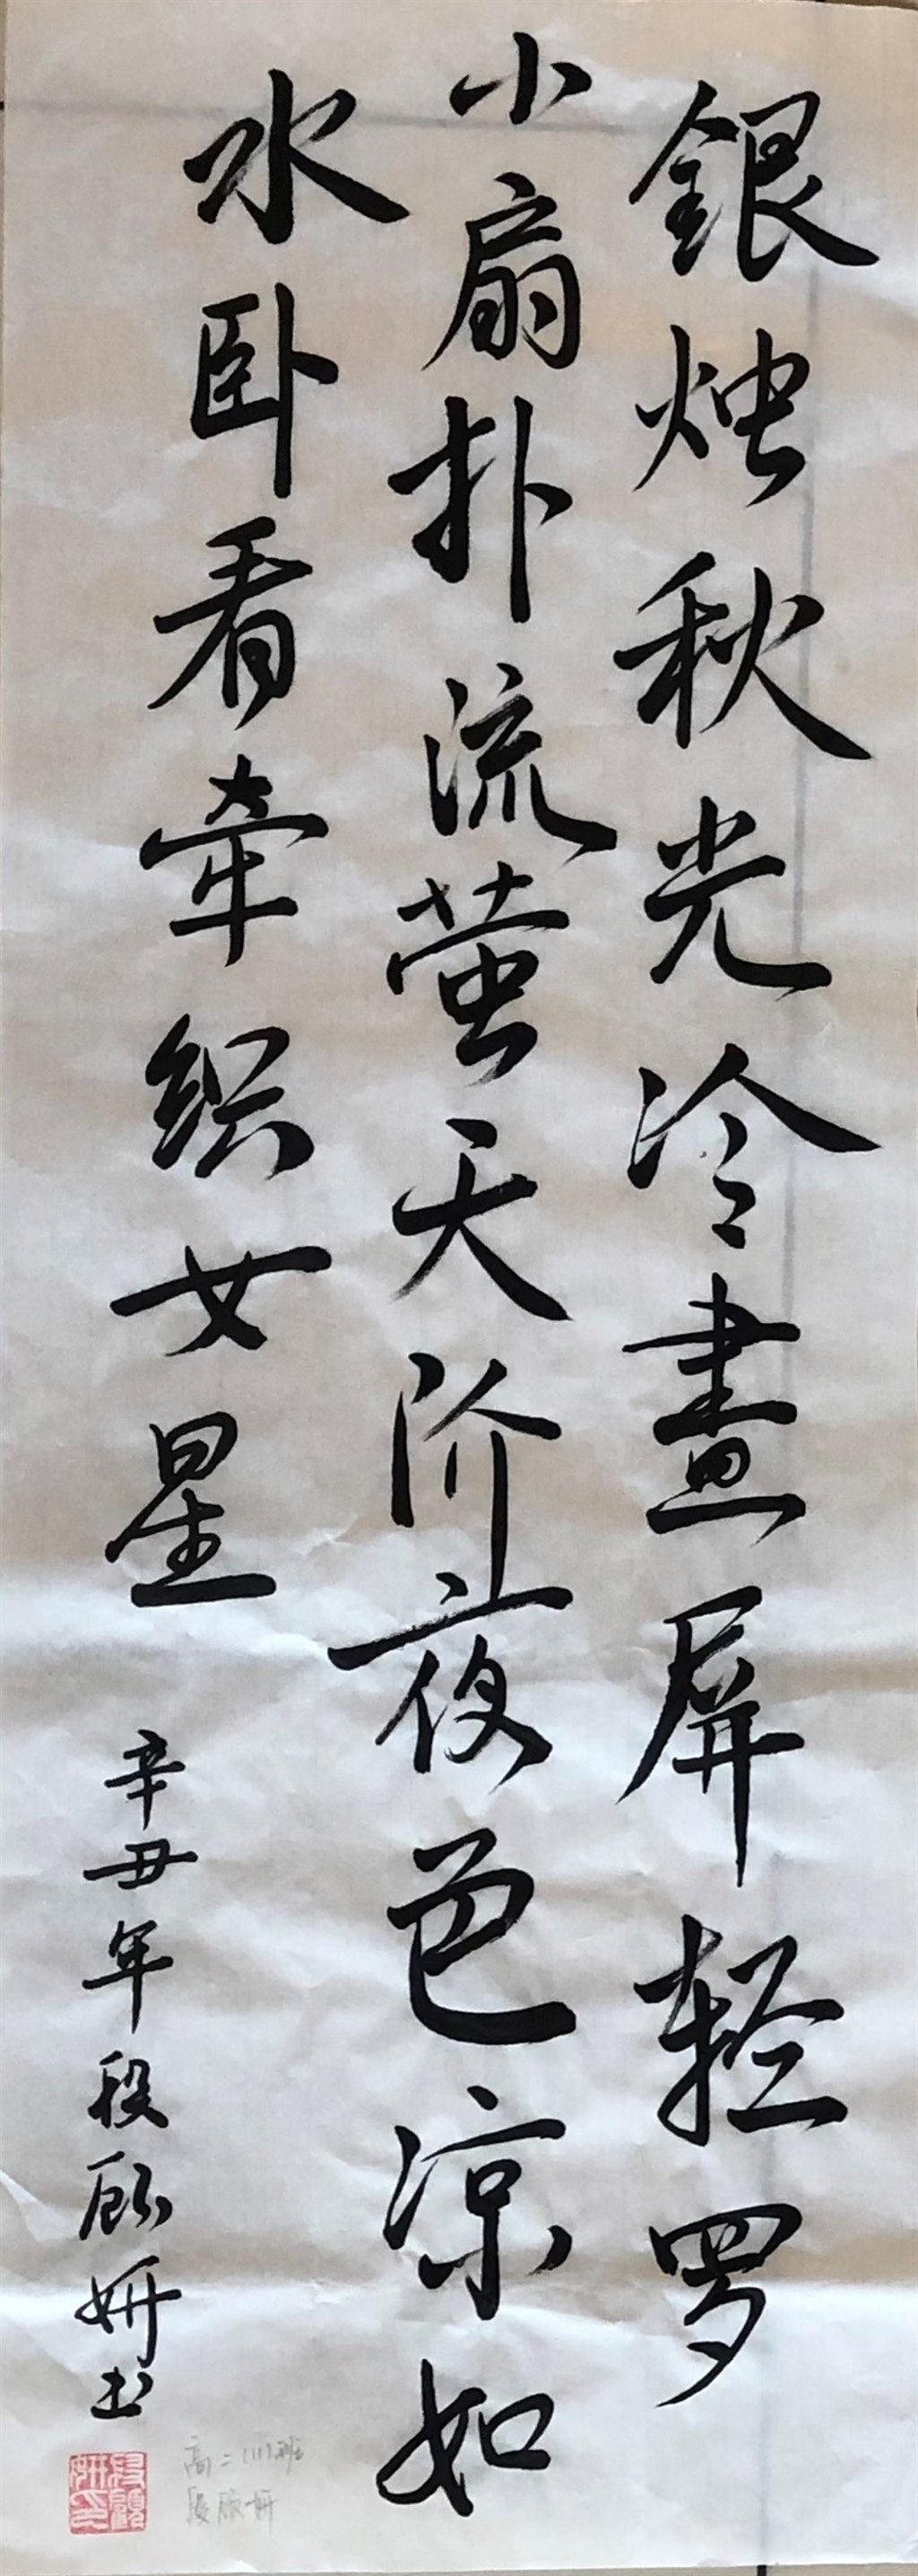 銀烛秋光冷畫屏轻罗
小扇扑流萤天阶夜色凉如
水卧看牵织女星
辛丑年段顾妍书
段顾妍印
高二(11)班
段顾妍